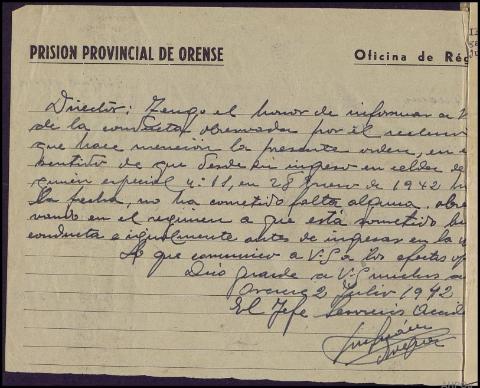 PRISION PROVINCIAL DE ORENSE
Oficina de Rég
Director: Tengo el honor de informar a V
de la conducta observada por el recluso
que hace mención la presente orden, en e
sentido de que desde su ingreso en celdas de
especial nº 11, en 28 Enero de 1942
la fecha, no ha cometido falta alguna, obser
vando en el regimen a que está sometido bu
conducta e igualmente antes de ingresar en la
Lo que comunico a V.S a los efectos
Dios guarde a V.S muchos
Orense 2 Julio 1942
El Jefe Servicios